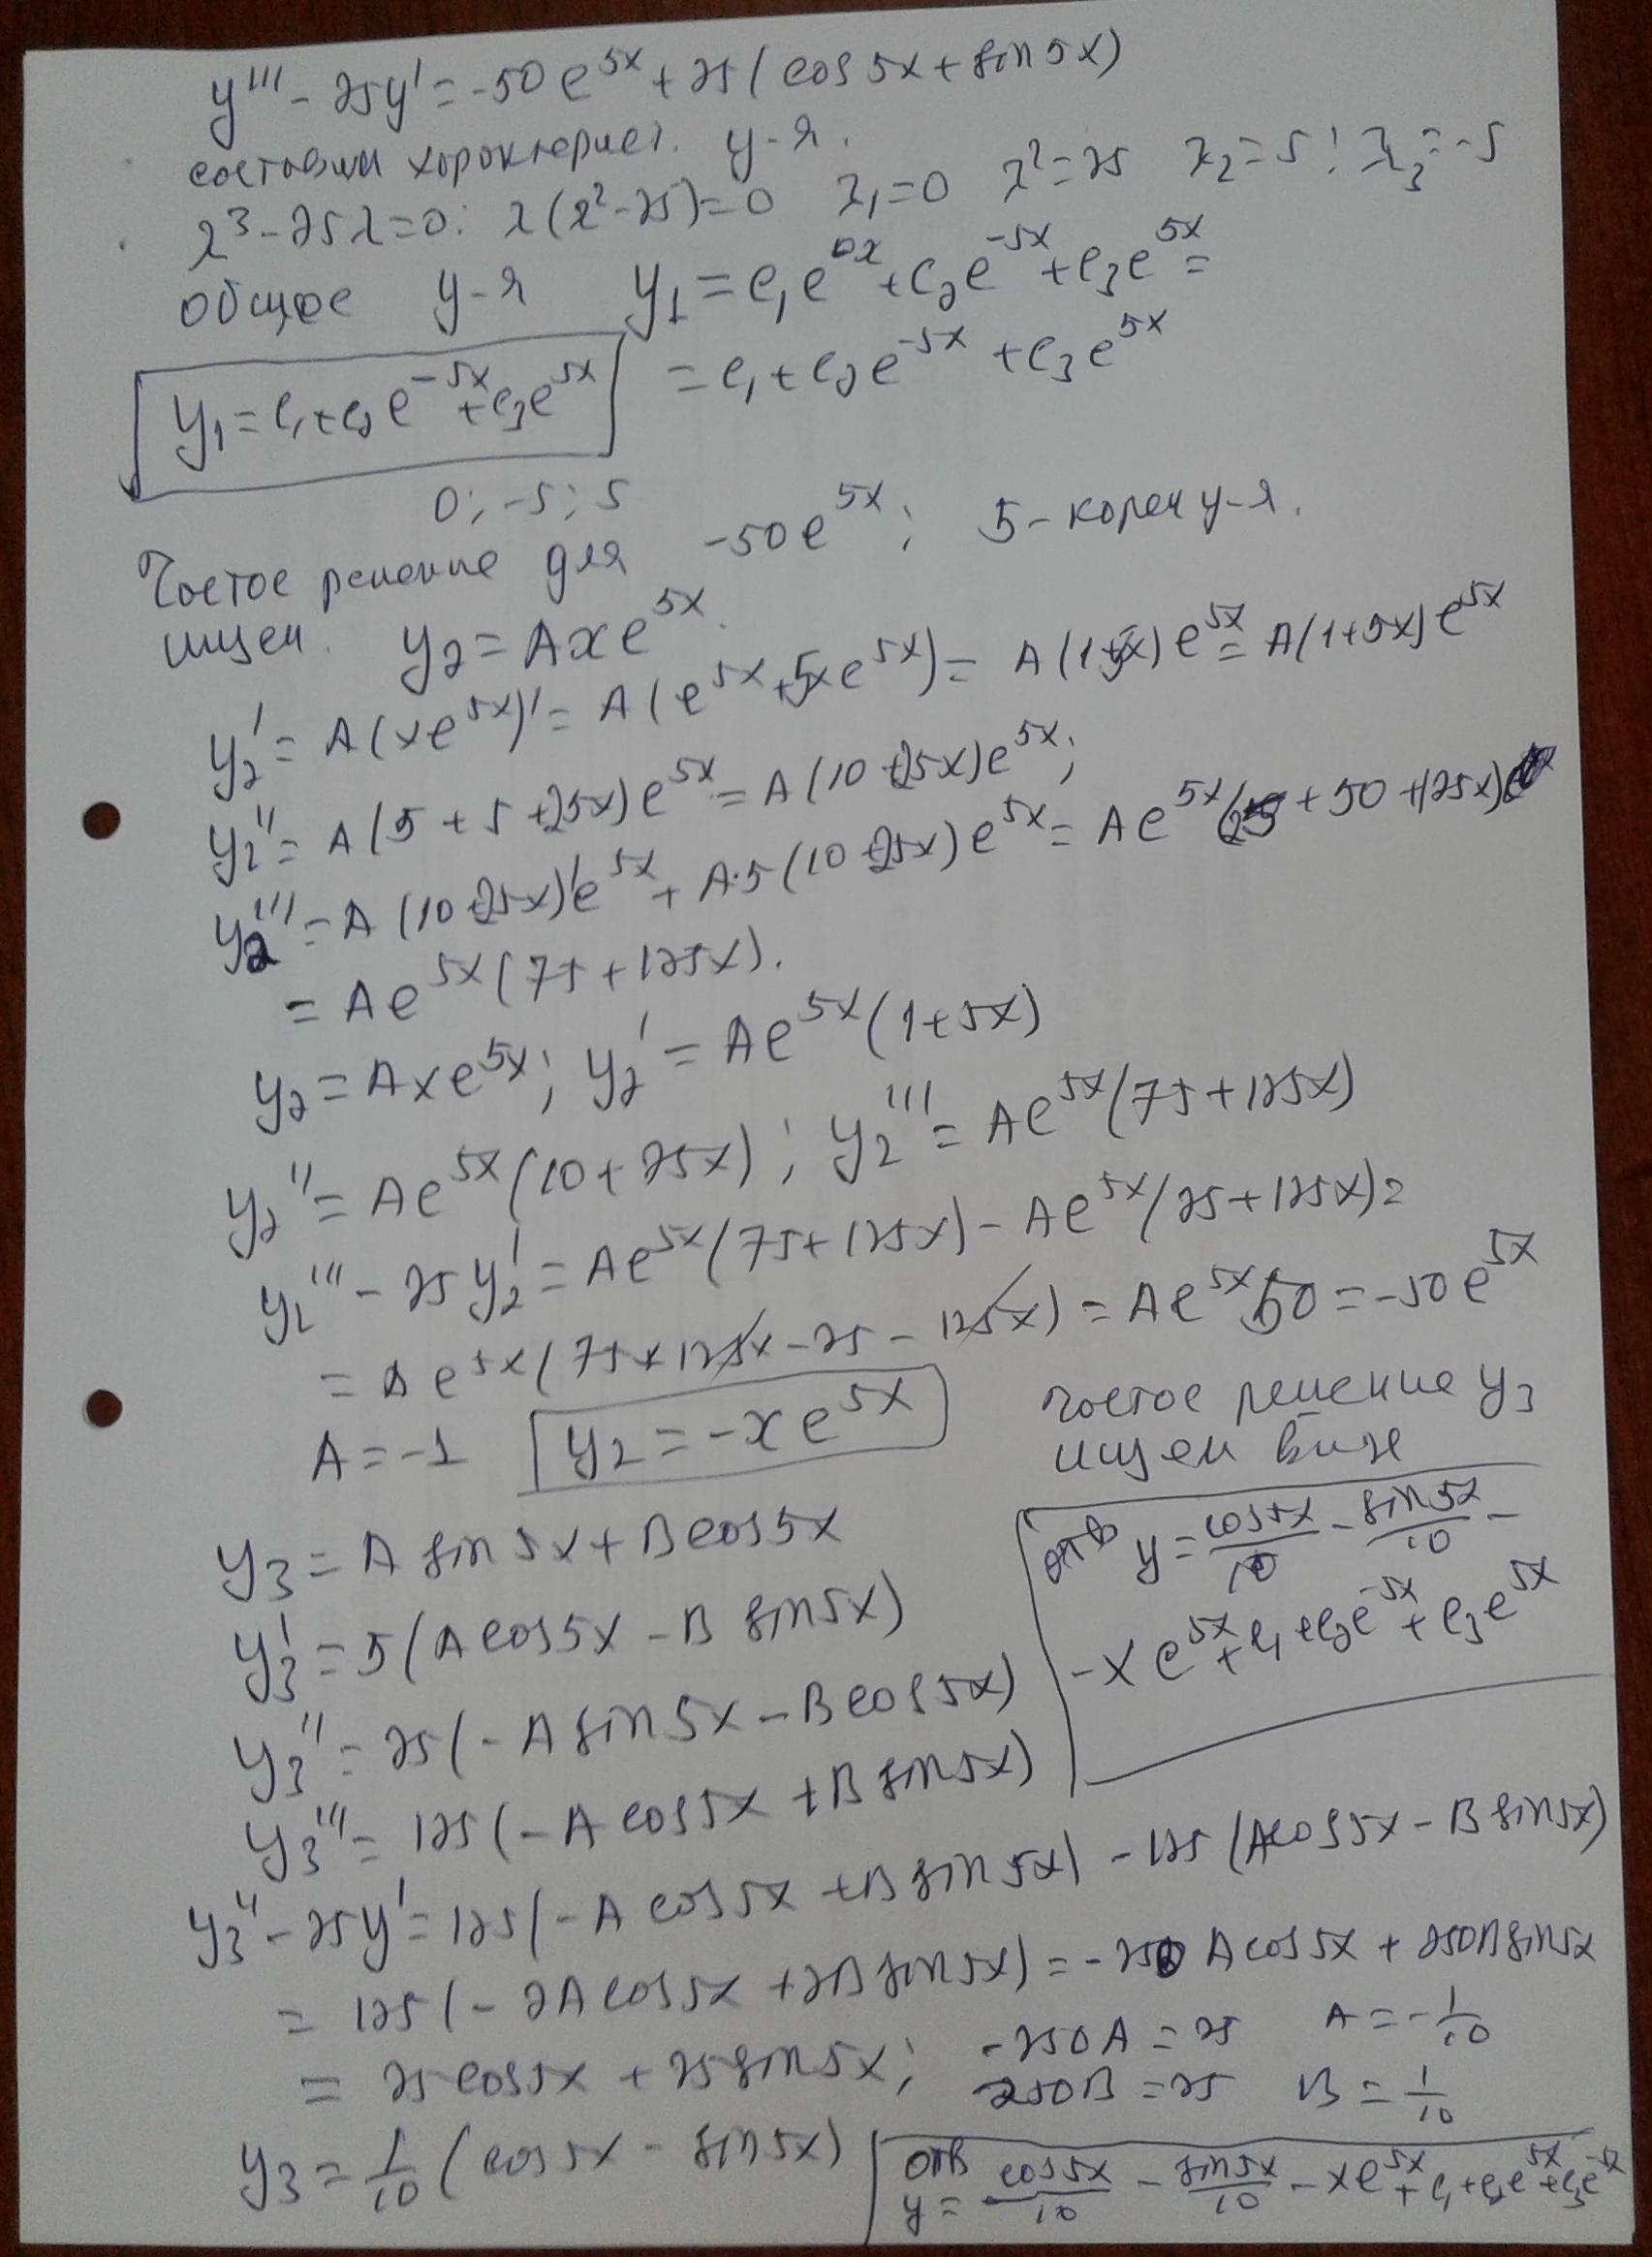 y''' - 25y' = -50e^{5x} + 25(cos5x + sin5x)
составим характерист. у-я.
λ^3 - 25λ = 0; λ(λ^2 - 25) = 0 λ_1 = 0 λ^2 = 25 λ_2 = 5; λ_3 = -5
общее у-я y_1 = c_1e^{0x} + c_2e^{-5x} + c_3e^{5x} =
= c_1 + c_2e^{-5x} + c_3e^{5x}
y_1 = c_1 + c_2e^{-5x} + c_3e^{5x}
0; -5; 5
Частое решение для -50e^{5x}; 5 - корен у-я.
ищем. y_2 = Axe^{5x}.
y_2' = A(xe^{5x})' = A(e^{5x} + 5xe^{5x}) = A(1+5x)e^{5x} = A(1+5x)e^{5x}
y_2'' = A(5 + 5 + 25x)e^{5x} = A(10 + 25x)e^{5x};
y_2''' = A(10 + 25x)'e^{5x} + A·5(10 + 25x)e^{5x} = Ae^{5x}(25 + 50 + 125x)
= Ae^{5x}(75 + 125x).
y_2 = Axe^{5x}; y_2' = Ae^{5x}(1 + 5x)
y_2'' = Ae^{5x}(10 + 25x); y_2''' = Ae^{5x}(75 + 125x)
y_2''' - 25y_2' = Ae^{5x}(75 + 125x) - Ae^{5x}(25 + 125x) =
= Ae^{5x}(75 + 125x - 25 - 125x) = Ae^{5x}50 = -50e^{5x}
A = -1 y_2 = -xe^{5x}
Частое решение y_3
ищем виде
y_3 = A sin5x + B cos5x
y_3' = 5(A cos5x - B sin5x)
y_3'' = 25(-A sin5x - B cos5x)
y_3''' = 125(-A cos5x + B sin5x)
отв y = cos5x/10 - sin5x/10 -
- xe^{5x} + c_1 + c_2e^{-5x} + c_3e^{5x}
y_3'' - 25y' = 125(-A cos5x + B sin5x) - 125(A cos5x - B sin5x)
= 125(-2A cos5x + 2B sin5x) = -250 A cos5x + 250B sin5x
= 25cos5x + 25sin5x; -250A = 25 A = -1/10
250B = 25 B = 1/10
y_3 = 1/10 (cos5x - sin5x)
отв
y = cos5x/10 - sin5x/10 - xe^{5x} + c_1 + c_2e^{5x} + c_3e^{-5x}